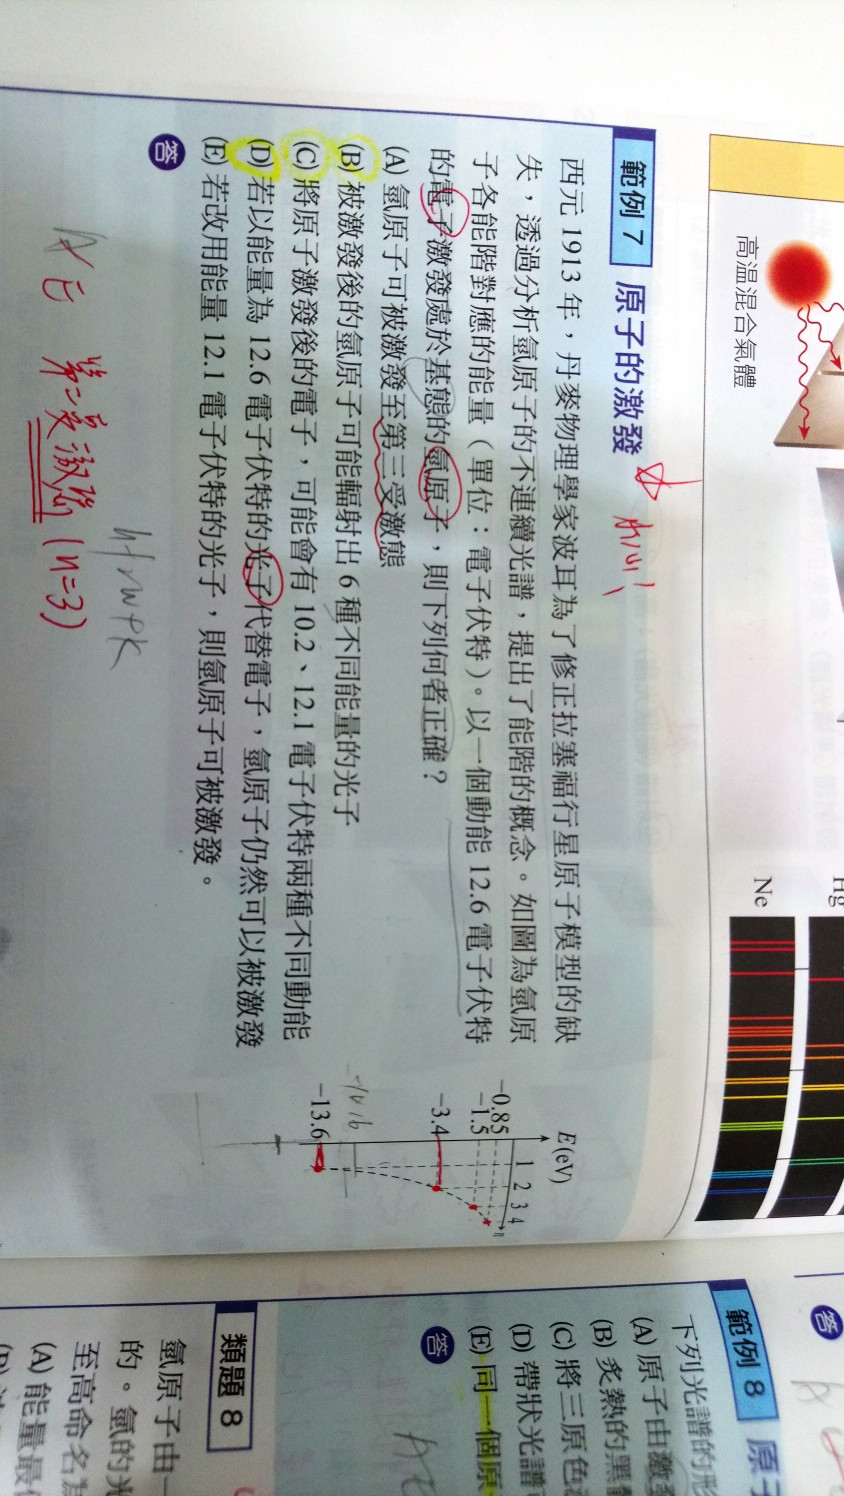 高溫混合氣體
Hg
Ne
範例 7 原子的激發
西元 1913 年，丹麥物理學家波耳為了修正拉塞福行星原子模型的缺
失，透過分析氫原子的不連續光譜，提出了能階的概念。如圖為氫原
子各能階對應的能量（單位：電子伏特）。以一個動能 12.6 電子伏特
的電子激發處於基態的氫原子，則下列何者正確？
(A) 氫原子可被激發至第三受激態
(B) 被激發後的氫原子可能輻射出 6 種不同能量的光子
(C) 將原子激發後的電子，可能會有 10.2、12.1 電子伏特兩種不同動能
(D) 若以能量為 12.6 電子伏特的光子代替電子，氫原子仍然可以被激發
(E) 若改用能量 12.1 電子伏特的光子，則氫原子可被激發。
答
(n=3)
E(eV)
1 2 3 4 n
-0.85
-1.5
-3.4
-13.6
答
範例 8
下列光譜的形
(A) 原子由激
(B) 炙熱的黑
(C) 將三原色
(D) 帶狀光譜
(E) 同一個原
答
類題 8
氫原子由一
的。氫的光
至高命名為
(A) 能量最